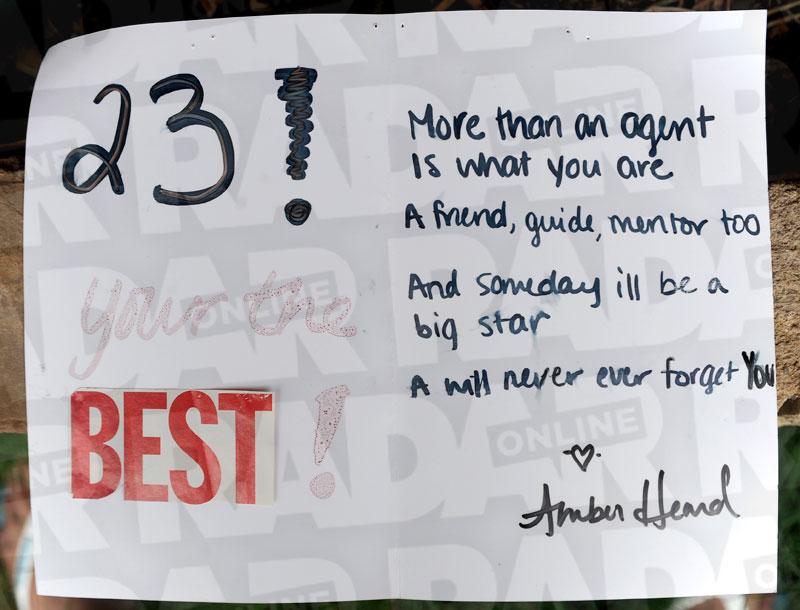 23!
your the
BEST!
More than an agent
Is what you are
A friend, guide, mentor too
And someday ill be a
big star
A will never ever forget You
Amber Heard
RADAR ONLINE